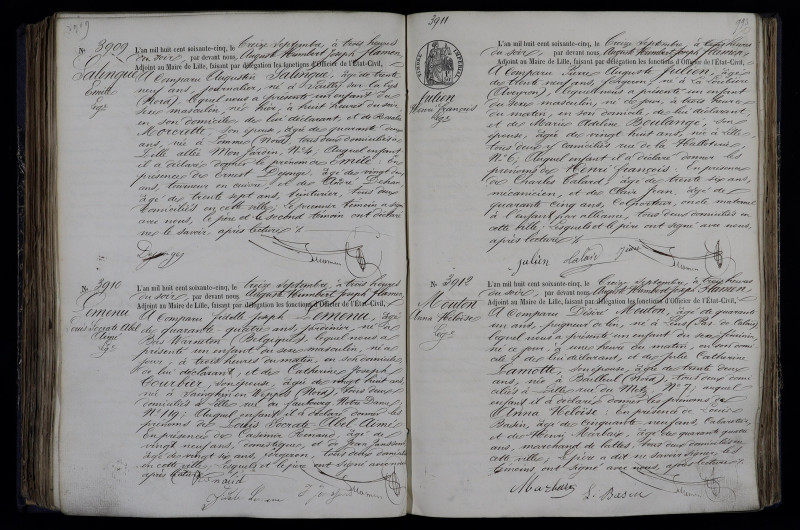 3909
N° 3909
Salingue
Emile
leg.
L'an mil huit cent soixante-cinq, le treize septembre, à trois heures
du soir, par devant nous, Auguste Humbert Joseph Flamen,
Adjoint au Maire de Lille, faisant par délégation les fonctions d'Officier de l'État-Civil,
A Comparu Augustin Salingue, âgé de trente
neuf ans, journalier, né à sur la Lys
(Nord), lequel nous a présenté un enfant du
sexe masculin, né hier, à huit heures du soir,
en son domicile de lui déclarant, et de
son épouse, âgée de quarante deux
ans, née à Lomme (Nord), tous deux domiciliés à
Lille N° 4, Auquel enfant
il a déclaré donner le prénom de Emile: En
présence de Ernest âgé de vingt
ans, tourneur en cuivre, et de
âgé de trente sept ans, tous deux
domiciliés en cette ville; le premier témoin a signé
avec nous, le père et le second témoin ont déclaré
ne le savoir, après lecture
N° 3910
Lomenu
Louis Socrate Abel
Aimé
leg.
L'an mil huit cent soixante-cinq, le treize septembre, à trois heures
du soir, par devant nous, Auguste Humbert Joseph Flamen,
Adjoint au Maire de Lille, faisant par délégation les fonctions d'Officier de l'État-Civil,
A Comparu Fidèle Joseph Lomenu, âgé
de quarante-quatre ans, jardinier, né à
Bas Warneton (Belgique), lequel nous a
présenté un enfant du sexe masculin, né ce
jour, à trois heures du matin, en son domicile
de lui déclarant, et de Catherine Joseph
Courbier, son épouse, âgée de vingt huit ans,
née à (Nord), tous deux
domiciliés à Lille rue du faubourg Notre Dame
N° 119; Auquel enfant il a déclaré donner les
prénoms de Louis Socrate Abel Aimé:
En présence de Casimir Renaud, âgé de
vingt neuf ans, domestique, et de Jean
âgé de vingt six ans, tous deux domiciliés
en cette ville, lesquels et le père ont signé avec nous
après lecture
3911
993
Julien
Henri François
leg.
L'an mil huit cent soixante-cinq, le treize septembre, à trois heures
du soir, par devant nous, Auguste Humbert Joseph Flamen,
Adjoint au Maire de Lille, faisant par délégation les fonctions d'Officier de l'État-Civil,
A Comparu Pierre Auguste Julien, âgé
de trente neuf ans, né à
(Aveyron), lequel nous a présenté un enfant du
sexe masculin, né ce jour, à trois heures
du matin, en son domicile, de lui déclarant,
et de Marie Adeline Boulanger, son
épouse, âgée de vingt huit ans, née à Lille,
tous deux y domiciliés rue de la
N° 6, Auquel enfant il a déclaré donner les
prénoms de Henri François: En présence
de Charles Calard, âgé de trente six ans,
mécanicien, et de Jean, âgé de
quarante cinq ans, Colporteur, oncle maternel
à l'enfant par alliance, tous deux domiciliés en
cette ville; lesquels et le père ont signé avec nous,
après lecture
Julien
N° 3912
Mouton
Anna Héloïse
leg.
L'an mil huit cent soixante-cinq, le treize septembre, à trois heures
du soir, par devant nous, Auguste Humbert Joseph Flamen,
Adjoint au Maire de Lille, faisant par délégation les fonctions d'Officier de l'État-Civil,
A Comparu Désiré Mouton, âgé de quarante
un ans, peigneur de lin, né à Lens (Pas de Calais),
lequel nous a présenté un enfant du sexe féminin,
né ce jour, à une heure du matin, en son domi-
cile, de lui déclarant, et de Julie Catherine
Lamotte, son épouse, âgée de trente deux
ans, née à Bailleul (Nord), tous deux domi-
ciliés à Lille rue du Metz N° 7; auquel
enfant il a déclaré donner les prénoms de
Anna Héloïse: En présence de Louis
Basin, âgé de cinquante-neuf ans, Cabaretier,
et de Henri âgé de quarante quatre
ans, marchand tous deux domiciliés en
cette ville. Le père a dit ne savoir signer, les
témoins ont signé avec nous, après lecture
L. Basin